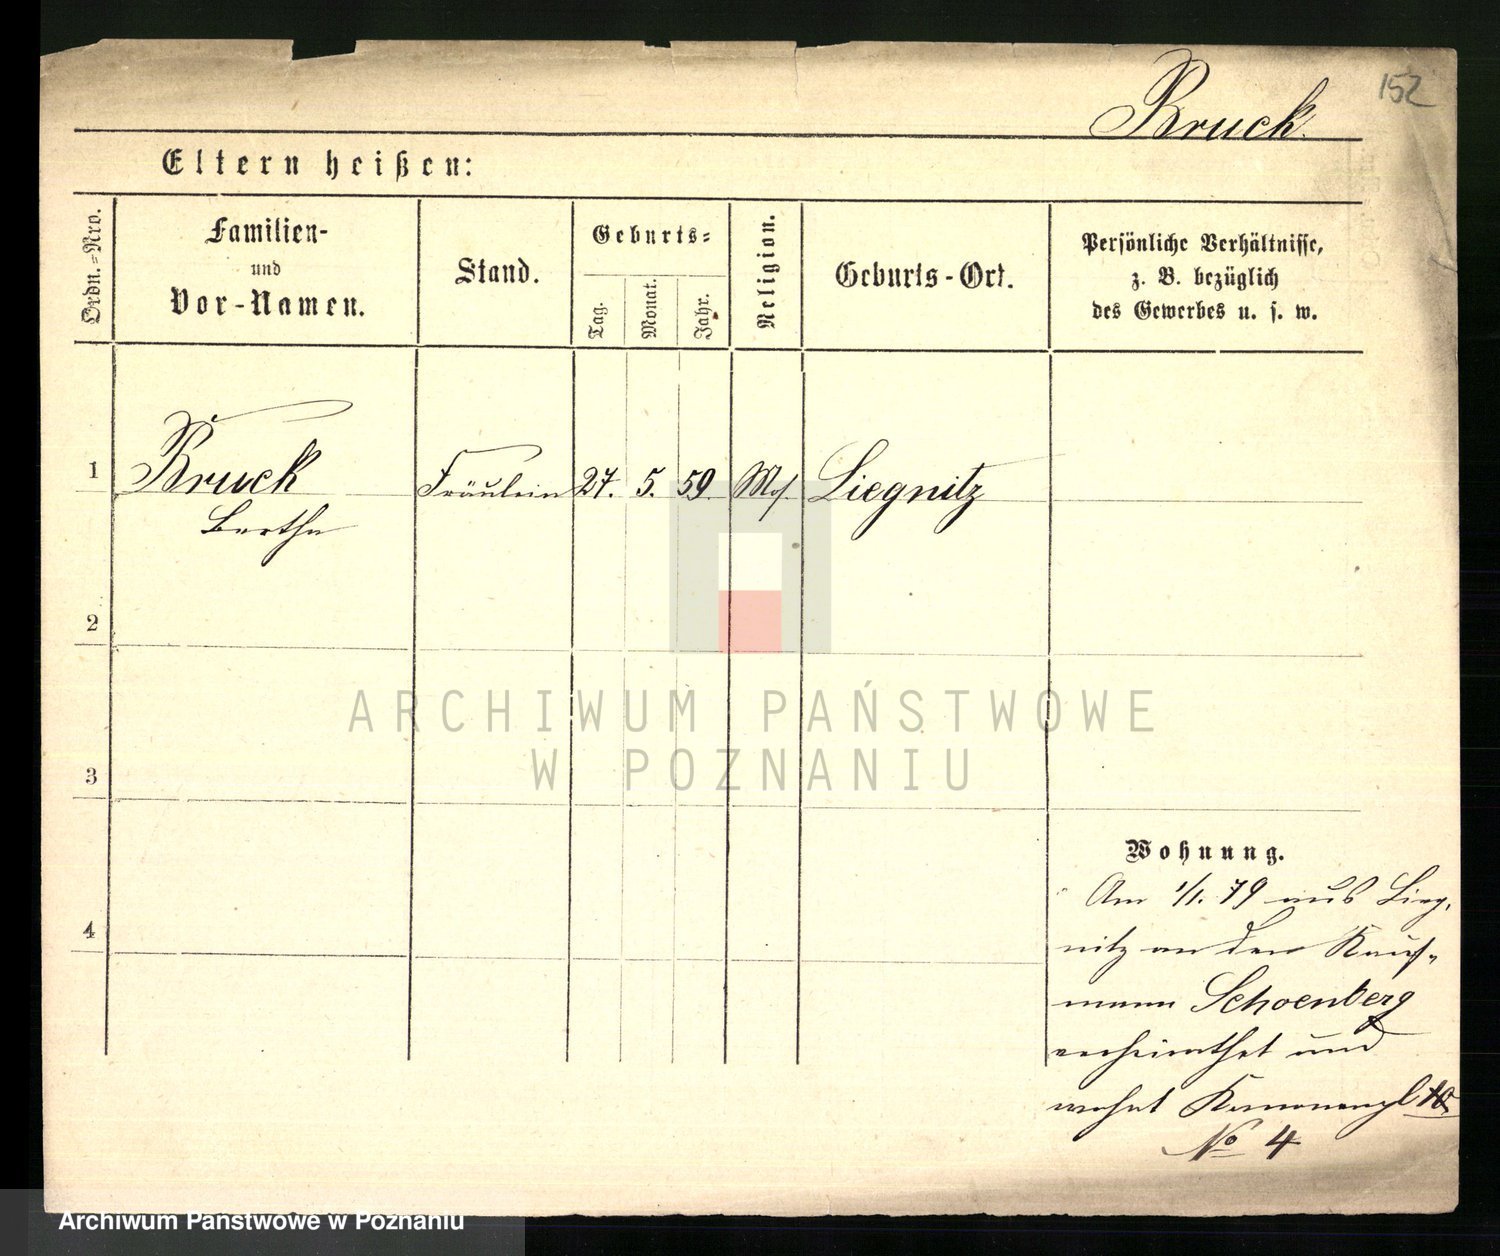 152
Bruck.
Eltern heißen:
Ordn.-Nro.
Familien-
und
Vor-Namen.
Stand.
Geburts-
Tag.
Monat.
Jahr.
Religion.
Geburts-Ort.
Persönliche Verhältnisse,
z. B. bezüglich
des Gewerbes u. s. w.
1 Bruck Fräulein 27. 5. 59. Mos. Liegnitz
Bertha
2
ARCHIWUM PAŃSTWOWE
W POZNANIU
3
Wohnung.
Am 1/1. 79 aus Lieg-
4
nitz an den Kauf-
mann Schoenberg
verheirathet und
wohnt Kanonenpl 10
No 4
Archiwum Państwowe w Poznaniu